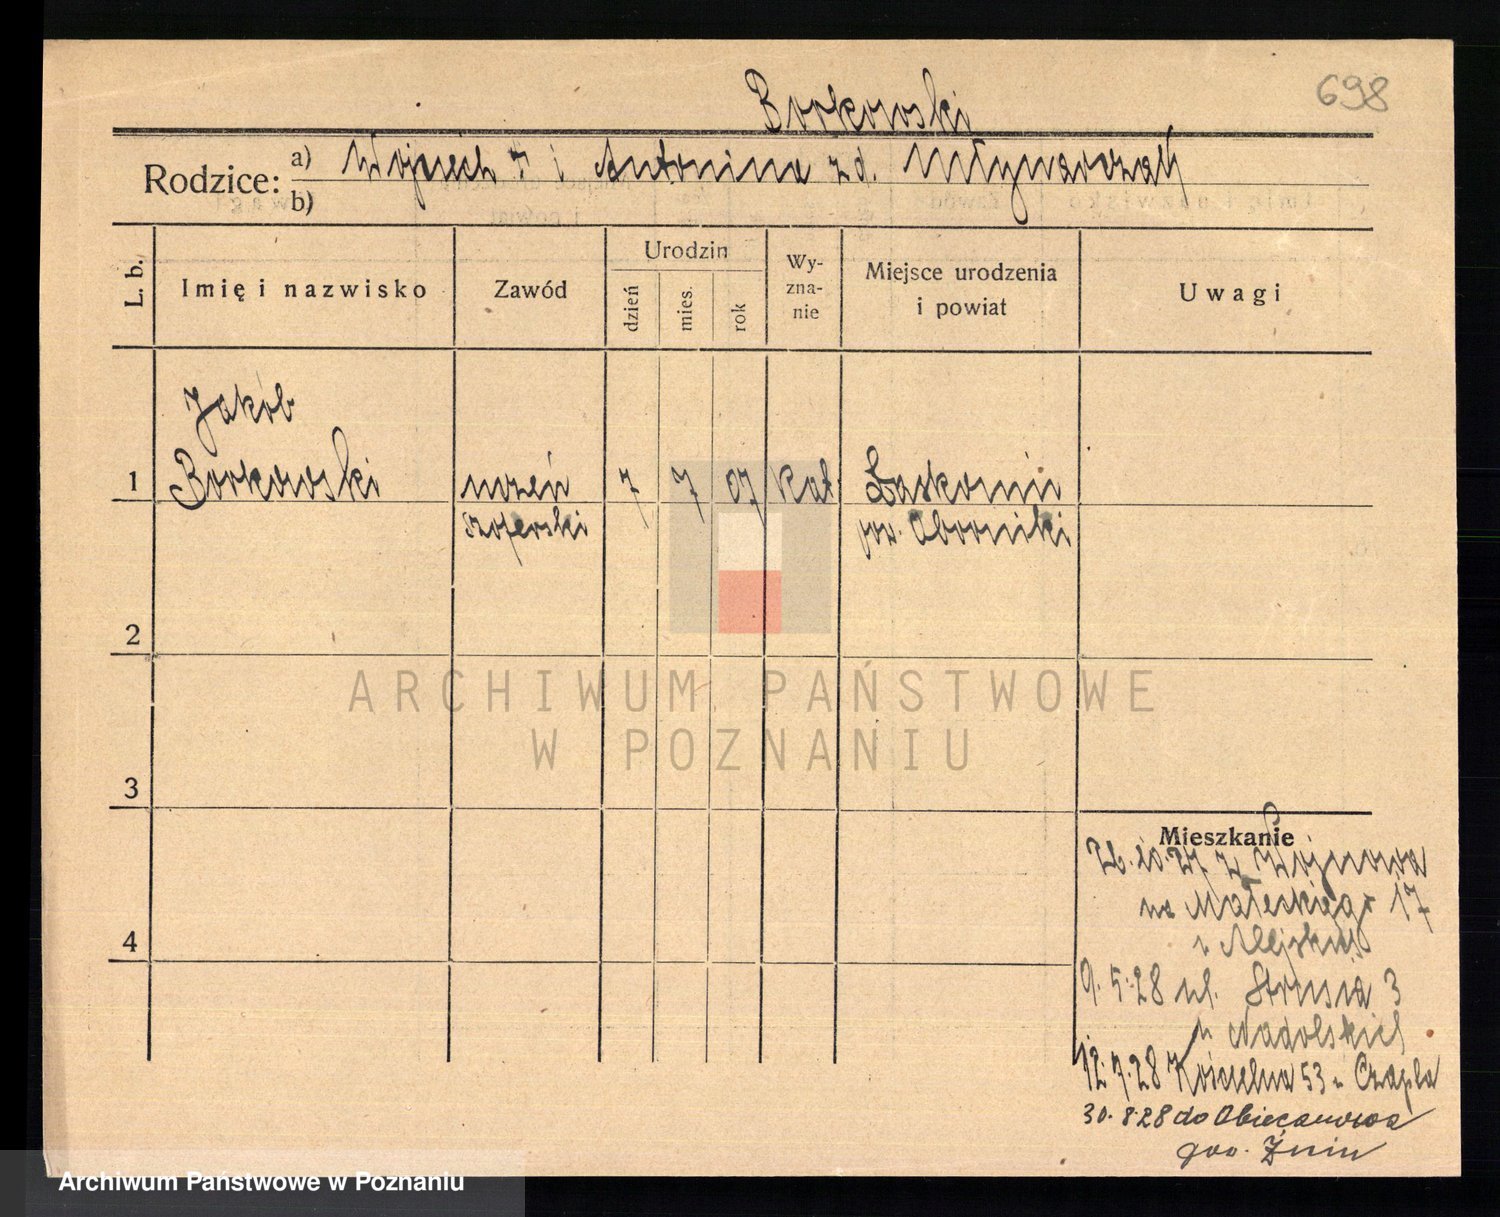 698
Borkowski
Rodzice: a) Wojciech i Antonina zd. Młynarczak
b)
L. b.
Imię i nazwisko
Zawód
Urodzin
dzień
mies.
rok
Wy-
zna-
nie
Miejsce urodzenia
i powiat
Uwagi
Jakób
1 Borkowski uczeń 7 7 07 kat
szoferski pow. Oborniki
2
3
4
Mieszkanie
26.10.27 z
na Małeckiego 17
9.5.28 ul. Strusia 3
u Nadolskich
12.7.28 Kościelna 53 u Czapla
30.8.28 do Obiecanowa
pow. Żnin
ARCHIWUM PAŃSTWOWE
W POZNANIU
Archiwum Państwowe w Poznaniu